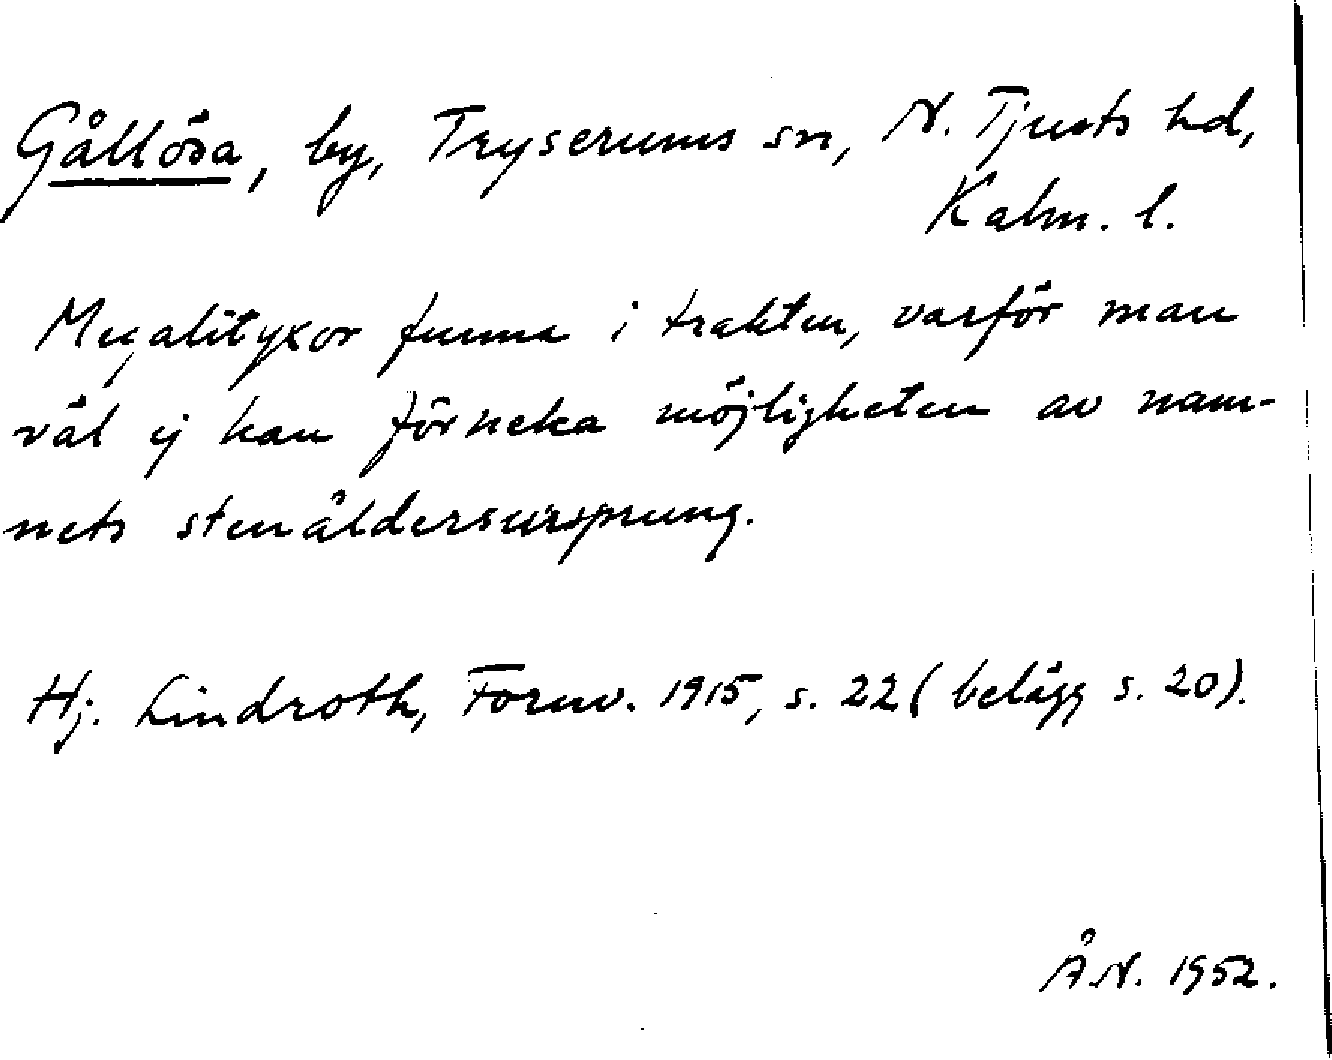 Gållösa, by, Tryserums sn, N. Tjusts hd,
Kalm. l.
Megalityxor funna i trakten, varför man
väl ej kan förneka möjligheten av nam-
nets stenåldersursprung.
Hj. Lindroth, Fornv. 1915, s. 22 (belägg s. 20).
Å.N. 1952.